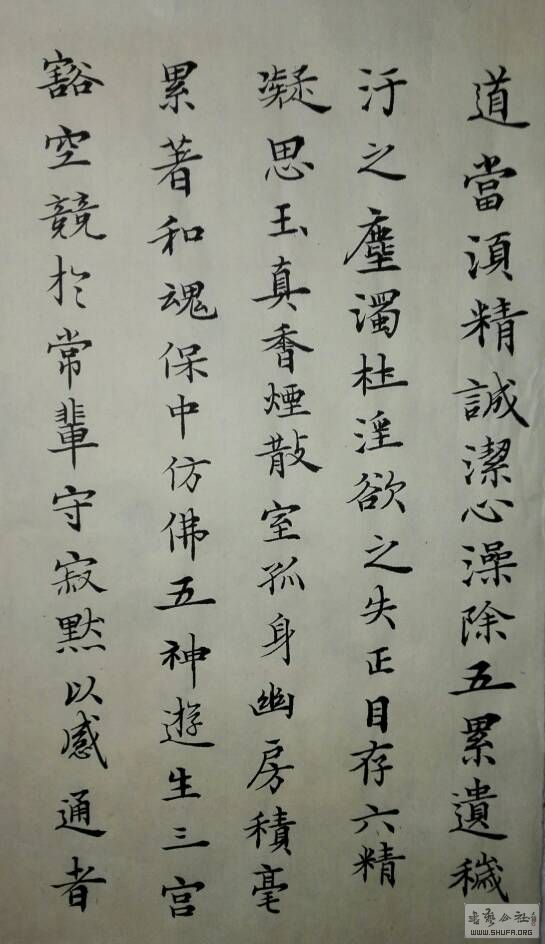 道當湏精誠潔心澡除五累遺穢
汙之塵濁杜淫欲之失正目存六精
凝思玉真香煙散室孤身幽房積毫
累著和魂保中仿佛五神遊生三宮
豁空競於常輩守寂默以感通者
书艺公社
WWW.SHUFA.ORG